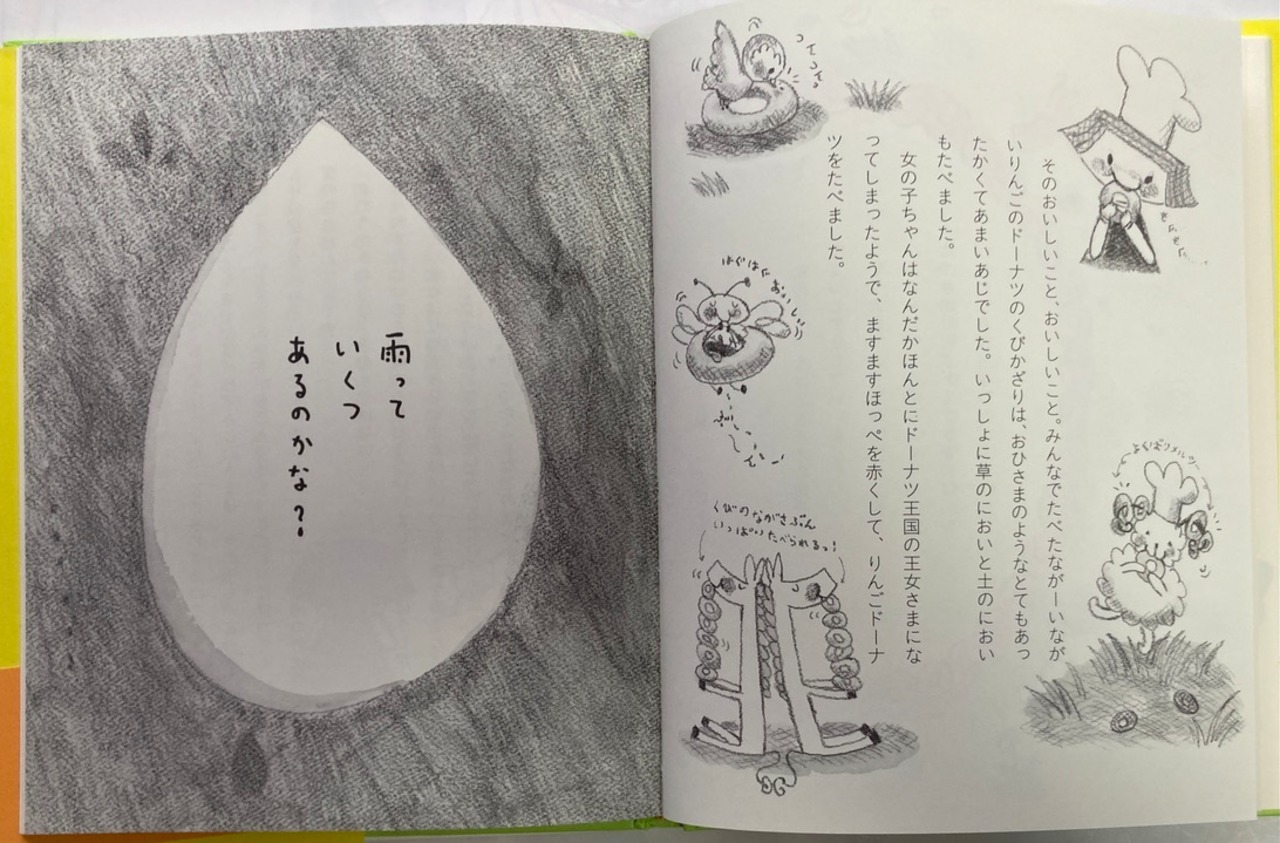 そのおいしいこと、おいしいこと。みんなでたべたながーいなが
いりんごのドーナツのくびかざりは、おひさまのようなとてもあっ
たかくてあまいあじでした。いっしょに草のにおいと土のにおい
もたべました。
女の子ちゃんはなんだかほんとにドーナツ王国の王女さまにな
ってしまったようで、ますますほっぺを赤くして、りんごドーナ
ツをたべました。
くびのながさぶん
いっぱいたべられるっ!
雨って
いくつ
あるのかな?